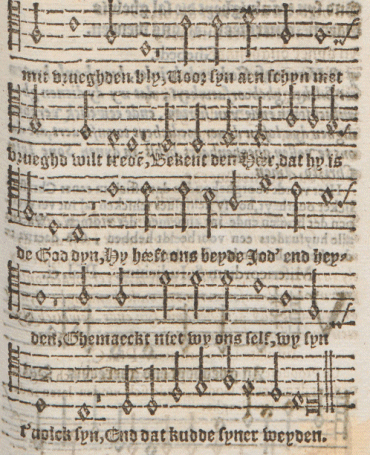 met vrueghden bly, Voor syn aen schyn met
vrueghd wilt trede, Bekent den Here, dat hy is
de God dyn, Hy heeft ons beyde Jod' end hey-
den, Ghemaeckt niet wy ons self, wy syn
t'volck syn, End dat kudde syner weyden.